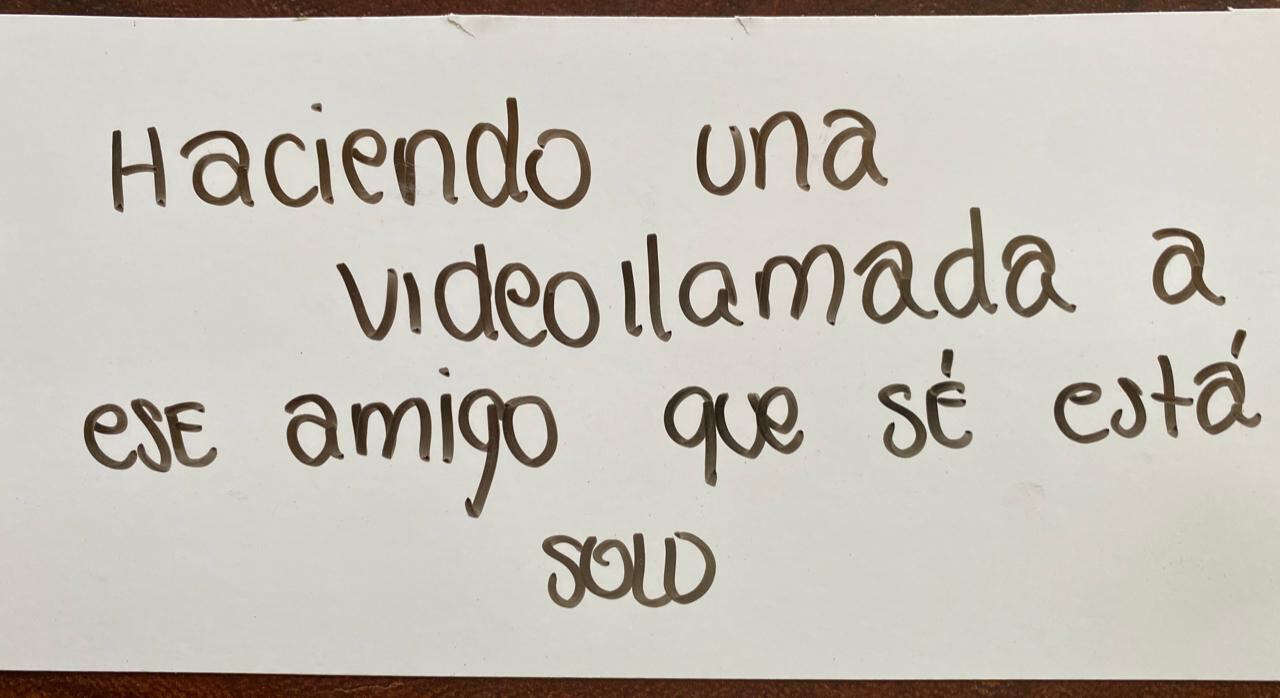 Haciendo una
videollamada a
ese amigo que sé está
solo